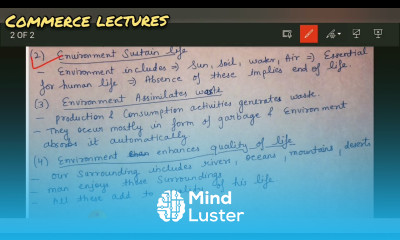 COMMERCE LECTURES
2 OF 2
(2) Environment Sustain life
- Environment includes ⇒ Sun, Soil, water, Air ⇒ Essential
for human life ⇒ Absence of these implies end of life.
(3) Environment Assimilates waste
- Production & Consumption activities generates waste.
- They occur mostly in form of garbage & Environment
absorbs it automatically
(4) Environment enhances quality of life
- our surrounding includes rivers, oceans, mountains, deserts
- man enjoys these surroundings
- All these add to quality of his life
Mind
Luster